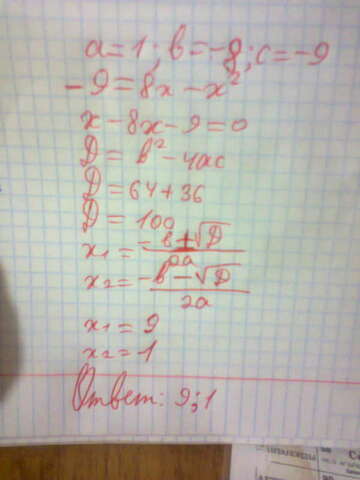 a=1; b=-8; c=-9
-9=8x-x²
x-8x-9=0
D=b²-4ac
D=64+36
D=100
x₁=(-b+√D)/2a
x₂=(-b-√D)/2a
x₁=9
x₂=1
Ответ: 9;1